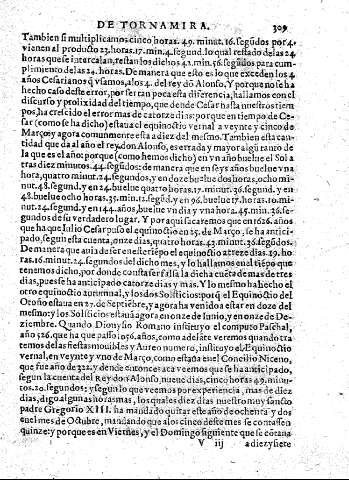 DE TORNAMIRA. 309
Tambien si multiplicamos cinco horas. 49. minut. 16. segũdos por 4.
vienen al producto 23. horas. 17. min. 4. segund. lo qual restado de las 24
horas que se intercalan, restan los dichos 42. min. 56. segund. para cum-
plimiento de las 24. horas. De manera que esto es lo que exceden los 4
años Cesarianos q̃ vsamos, a los 4. del rey dõ Alonso, Y porque no se ha
hecho caso deste error, por ser tan poca esta diferencia, hallamos con el
discurso y prolixidad del tiempo, que dende Cesar hasta nuestros tiem
pos, ha crescido el error mas de catorze dias: porque en tiempo de Ce-
sar (como se ha dicho) estaua el equinoctio vernal a veynte y cinco de
Março, y agora comunmente esta a diez del mesmo. Tambien esta can
tidad que da al año el rey don Alonso, es errada y mayor algũ tanto de
la que es el año: porque (como hemos dicho) en vn año buelue el Sol a
tras diez minutos. 44. segũdos: de manera que en seys años buelue vna
hora, quatro minut. 24. segundos, y en doze buelue dos horas, ocho mi-
nut. 48. segund. y en 24. buelue quatro horas 17. minut. 36. segund. y en
48. buelue ocho horas. 35. min. 12. segũd. y en 96. buelue 17. horas 10. mi-
nut. 24. segund. y en 144. años, buelue vn dia y vna hora. 45. min. 36. se-
gundos de su verdadero lugar. Y por aqui sacaremos que en 1626. años
que ha que Julio Cesar puso el equinoctio en 25. de Março, se ha antici-
pado, segun esta cuenta, onze dias, quatro horas. 43. minut. 36. segũdos.
De manera que auia de ser en este tiẽpo el equinoctio a treze dias. 19. ho
ras. 16. minut. 24. segundos del dicho mes, y lo hallamos en el tiẽpo que
tenemos dicho, por donde consta ser falsa la dicha cuẽta de mas de tres
dias, pues se ha anticipado catorze dias y mas. Y lo mesmo ha hecho el
otro equinoctio autumnal, y los dos Solsticios: por q̃ el Equinoctio del
Otoño estaua en 27. de Septiembre, y agora ha venido a estar en doze del
mesmo: y los Solsticios estauã agora en onze de Iunio, y en onze de De-
ziembre. Quando Dionysio Romano instituyo el computo Paschal,
año 526. que ha que passo 1056. años, como adelãte veremos quando tra
temos de las fiestas mouibles y Aureo numero, instituyo el Equinoctio
vernal, en veynte y vno de Março, como estaua en el Concilio Niceno,
que fue año de 322. y dende entonces aca veemos que se ha anticipado,
segun la cuenta del Rey dõ Alonso, nueue dias, cinco horas 49. minut-
tos. 20. segundos: y segun lo que veemos por experiencia, mas de diez
dias, digo algunas horas mas, los quales diez dias nuestro muy sancto
padre Gregorio XIII. ha mandado quitar este año de ochenta y dos
en el mes de Octubre, mandando que a los cinco deste mes se contassen
quinze: y porque es en Viernes, y el Domingo siguiente que se cõtaua
V iij a diez y siete